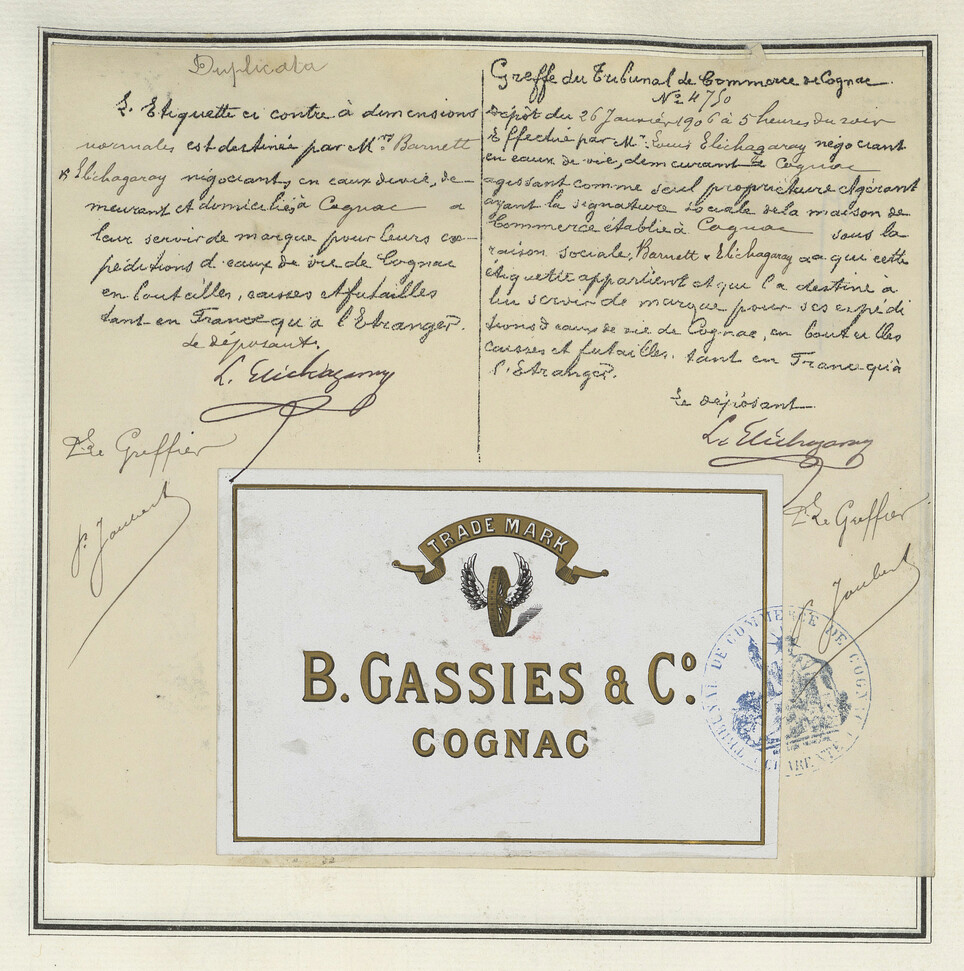 Duplicata
L'Etiquette ci contre à dimensions
normales est destinée par M.rs Barnett
& Elichagaray négociants, en eaux de vie, de-
meurant et domiciliés, à Cognac a
leur servir de marque pour leurs ex-
péditions d'eaux de vie de Cognac
en bouteilles, caisses et futailles
tant en France qu'à l'Etranger.
Le déposant.
L. Elichagaray
P. Le Greffier
P. Joubert
Greffe du Tribunal de Commerce de Cognac
No 4750
Dépôt du 26 Janvier 1906 à 5 heures du soir
Effectué par Mr. Louis Elichagaray négociant
en eaux de vie, demeurant à Cognac
agissant comme seul propriétaire et gérant
ayant la signature sociale de la maison de
Commerce établie à Cognac sous la
raison sociale, Barnett & Elichagaray a qui cette
étiquette appartient et qui l'a destiné à
lui servir de marque pour ses expédi
tions d'eaux de vie de Cognac, en bouteilles
caisses et futailles, tant en France qu'à
l'Etranger.
Le déposant
L. Elichagaray
P. Le Greffier
P. Joubert
TRADE MARK
B. GASSIES & Co.
COGNAC
TRIBUNAL DE COMMERCE DE COGNAC
(CHARENTE)